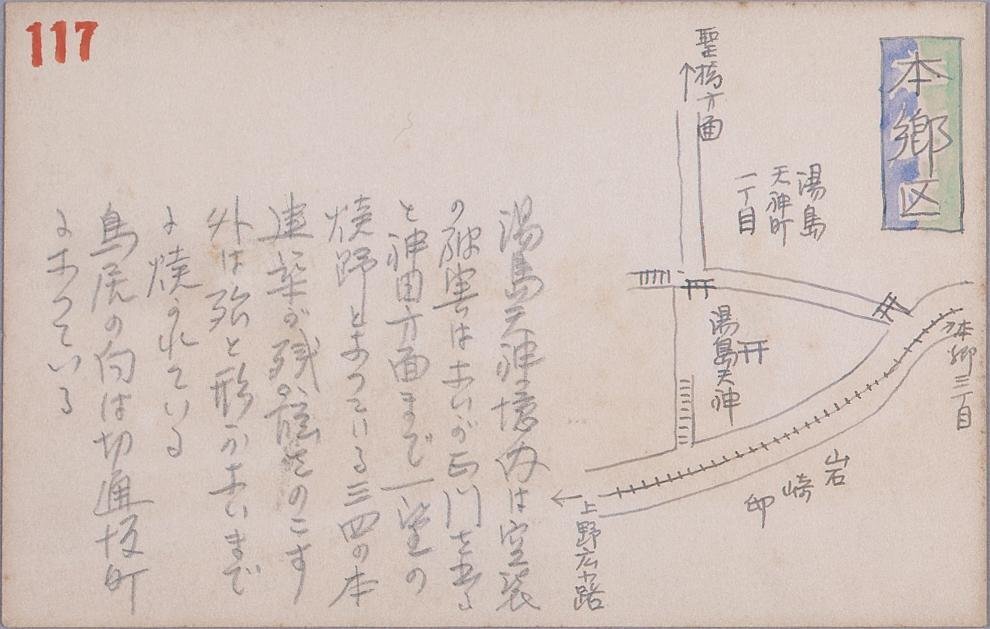 117
本郷区
聖橋方面
湯島
天神町
一丁目
湯島天神
本郷三丁目
岩崎邸
上野広小路
湯島天神境内は空襲
の被害はないが正門を出る
と神田方面まで一望の
焼野となつている三四の本
建築が残骸をのこす
外は殆と形がないまで
に焼かれている
鳥居の向は切通坂町
になつている